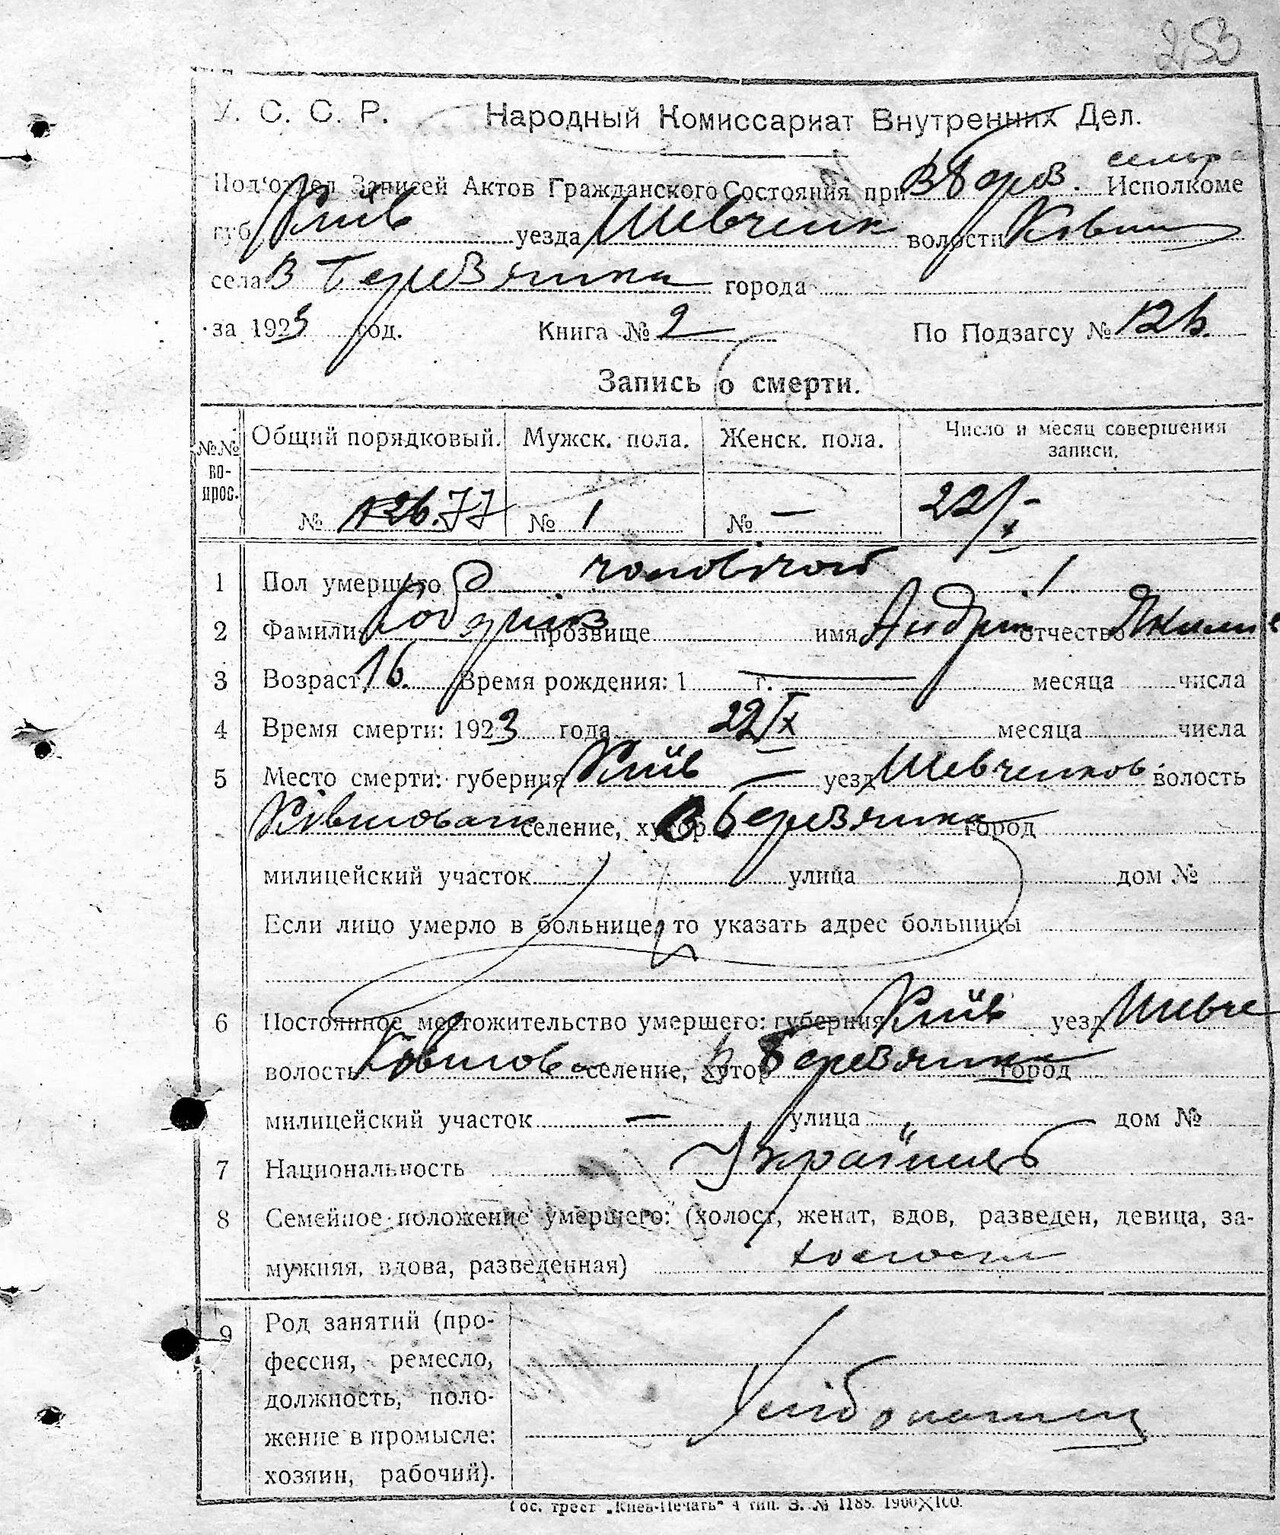 253
У. С. С. Р. Народный Комиссариат Внутренних Дел.
Под'отдел Записей Актов Гражданского Состояния при В Берев. сельра Исполкоме
губ. Київ уезда Шевченк волости Ківш
села В Березянка города
за 1923 год. Книга № 2 По Подзагсу № 126.
Запись о смерти.
№№ вопрос. Общий порядковый. Мужск. пола. Женск. пола. Число и месяц совершения записи.
№ 126. 77 № 1 № — 22/X
1 Пол умершего чоловічой 1
2 Фамилия прозвище имя Андрій отчество
3 Возраст 16. Время рождения: 1 г. — месяца числа
4 Время смерти: 1923 года 22/X месяца числа
5 Место смерти: губерния Київ уезд Шевченков. волость
селение, хутор В Березянка город
милицейский участок улица дом №
Если лицо умерло в больнице, то указать адрес больницы
6 Постоянное местожительство умершего: губерния Київ уезд Шевче
волость Ківшов селение, хутор В Березянка город
милицейский участок — улица дом №
7 Национальность Українець
8 Семейное положение умершего: (холост, женат, вдов, разведен, девица, за-
мужняя, вдова, разведенная) холостий
9 Род занятий (про-
фессия, ремесло,
должность, поло-
жение в промысле:
хозяин, рабочий). Хлібопашец
Гос. трест „Киев-Печать" 4 тип. З. № 1188. 1900×100.